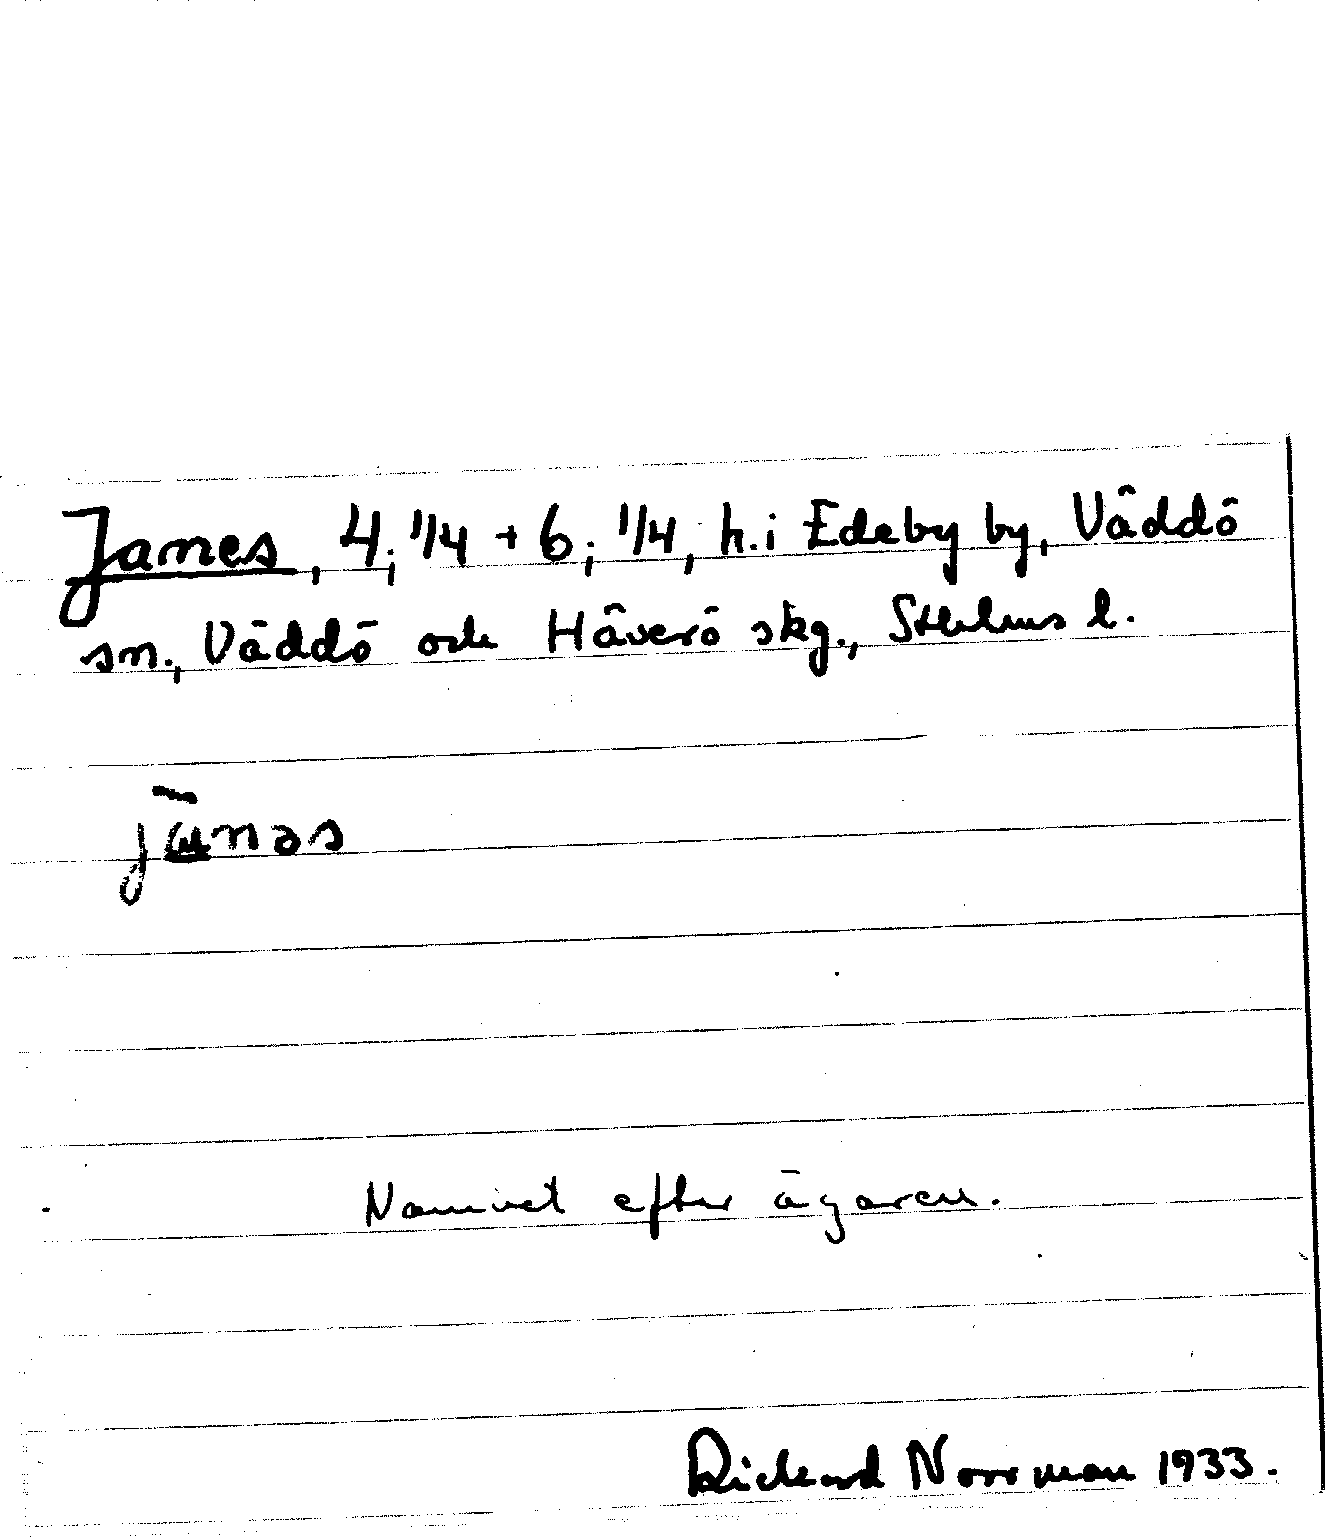 James, 4; 1/4 + 6; 1/4, h. i Edeby by, Väddö
sn., Väddö och Häverö skg., Sthlms l.
Namnet efter ägaren.
Rickard Norrman 1933.